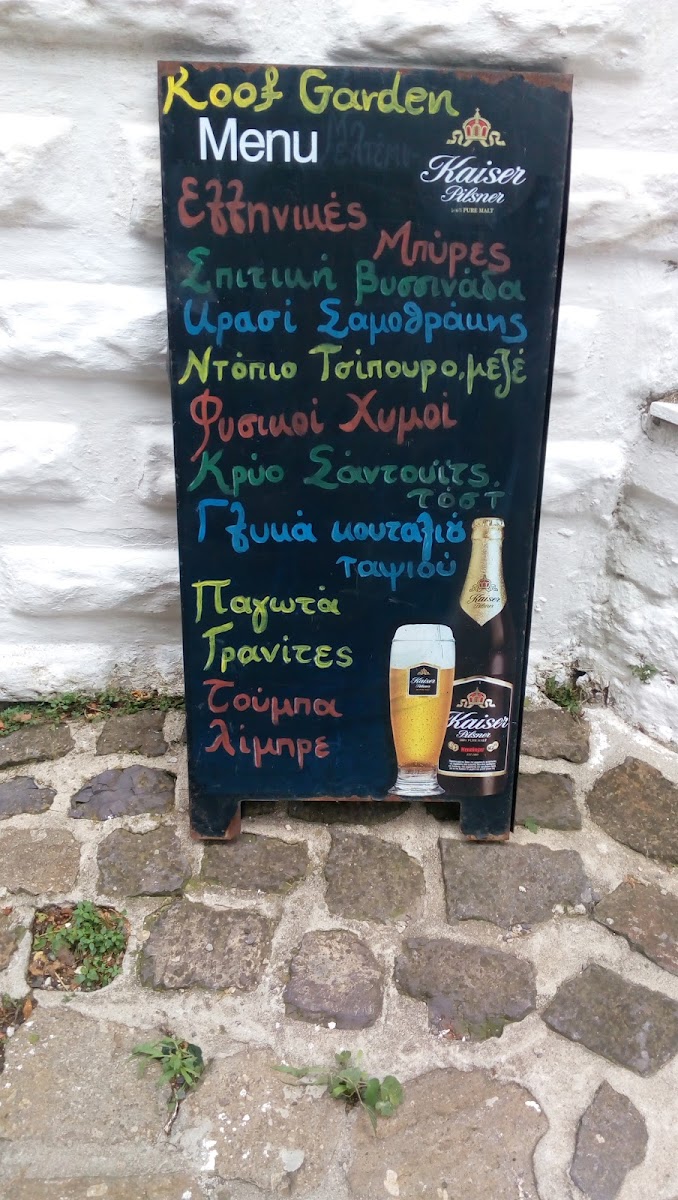 Roof Garden
Menu
Kaiser
Pilsner
100% PURE MALT
Ελληνικές
Μπύρες
Σπιτική βυσσινάδα
Κρασί Σαμοθράκης
Ντόπιο Τσίπουρο, μεζέ
Φυσικοί Χυμοί
Κρύο Σάντουϊτς
τόστ
Γλυκά κουταλιού
ταψιού
Παγωτά
Γρανίτες
Τούμπα
λίμπρε
Kaiser
Kaiser
Kaiser
Pilsner